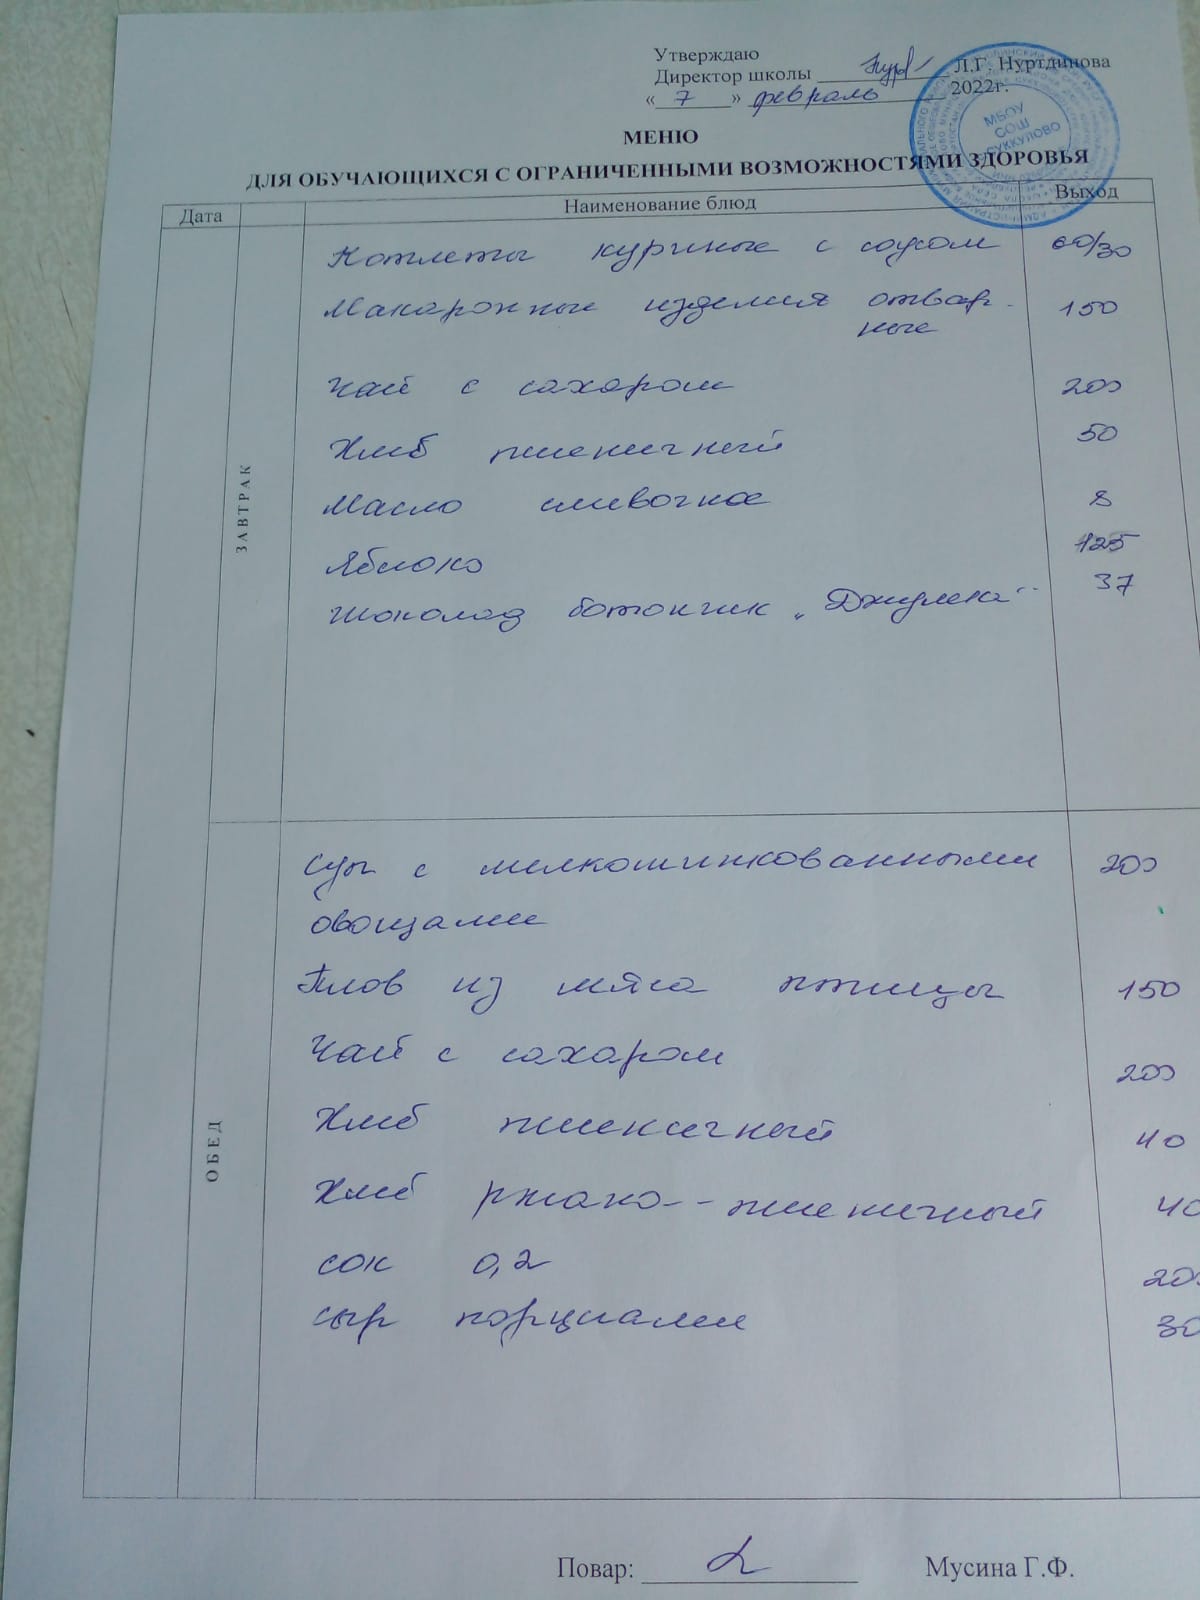 Утверждаю
Директор школы Л.Г. Нуртдинова
« 7 » февраль 2022г.
МБОУ
СОШ
СУККУЛОВО
МЕНЮ
ДЛЯ ОБУЧАЮЩИХСЯ С ОГРАНИЧЕННЫМИ ВОЗМОЖНОСТЯМИ ЗДОРОВЬЯ
Дата Наименование блюд Выход
ЗАВТРАК
Котлеты куриные с соусом 60/30
Макаронные изделия отвар- 150
ные
Чай с сахаром 200
Хлеб пшеничный 50
Масло сливочное 8
Яблоко 125
Шоколад батончик „Джулека" 37
ОБЕД
Суп с мелкошинкованными 200
овощами
Плов из мяса птицы 150
Чай с сахаром 200
Хлеб пшеничный 40
Хлеб ржано-пшеничный 40
сок 0,2 200
сыр порциями 30
Повар: Мусина Г.Ф.